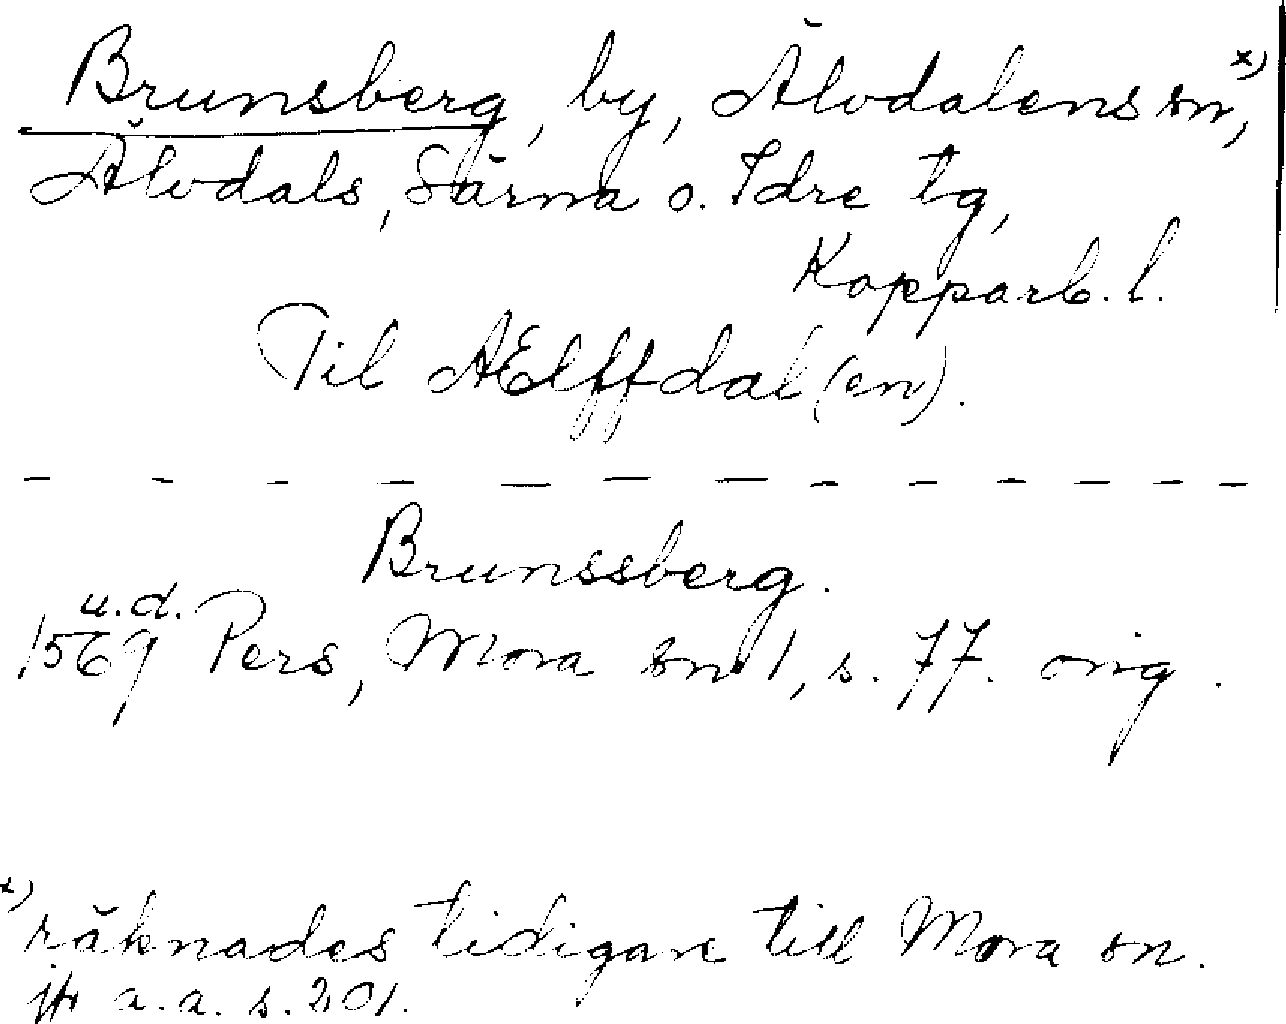 Brunsberg, by, Älvdalens sn, x)
Älvdals, Särna o. Idre tg,
Kopparb. l.
Til AElffdal (en).
Brunssberg.
u.d.
1569 Pers, Mora sn 1, s. 77. orig.
x) räknades tidigare till Mora sn.
jfr a.a. s. 201.